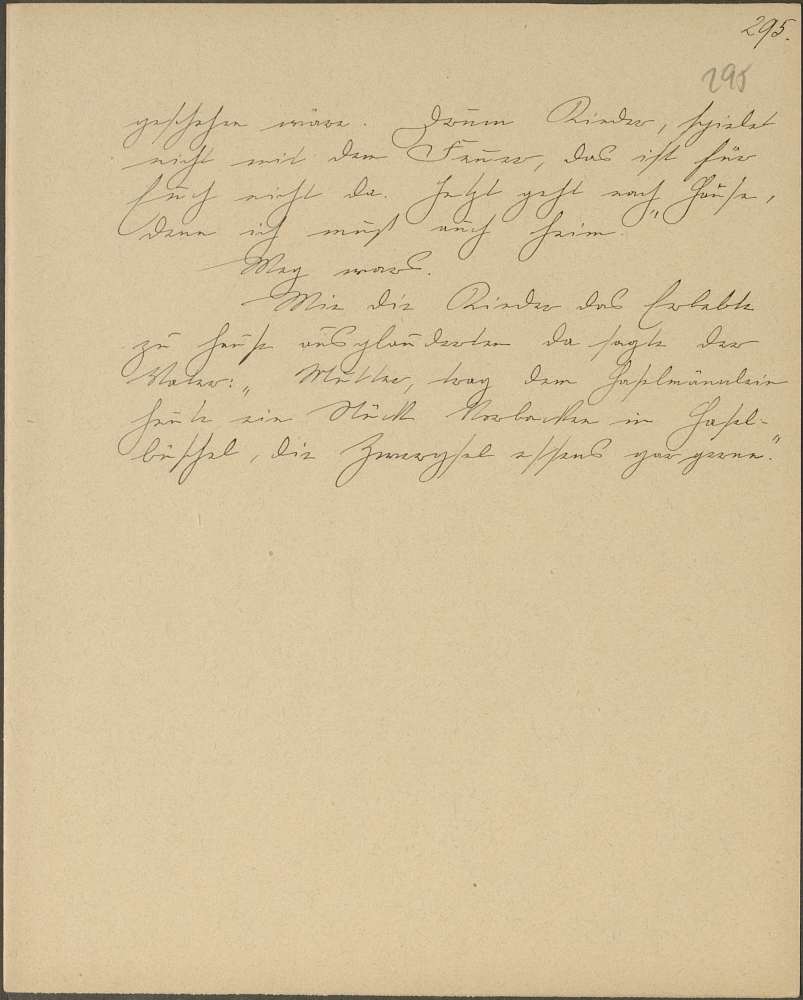 295.
295
geschehen wäre. Drum Kinder, spielet
nicht mit dem Feuer, das ist für
Euch nicht da. Jetzt geht nach Hause,
denn ich muß auch heim."
Weg wars.
Wie die Kinder das Erlebte
zu Hause ausplauderten da sagte der
Vater: „Mutter, trag dem Haselmännlein
heute ein Stück in Hasel-
büschel, die Zwergsel essens gar gerne."